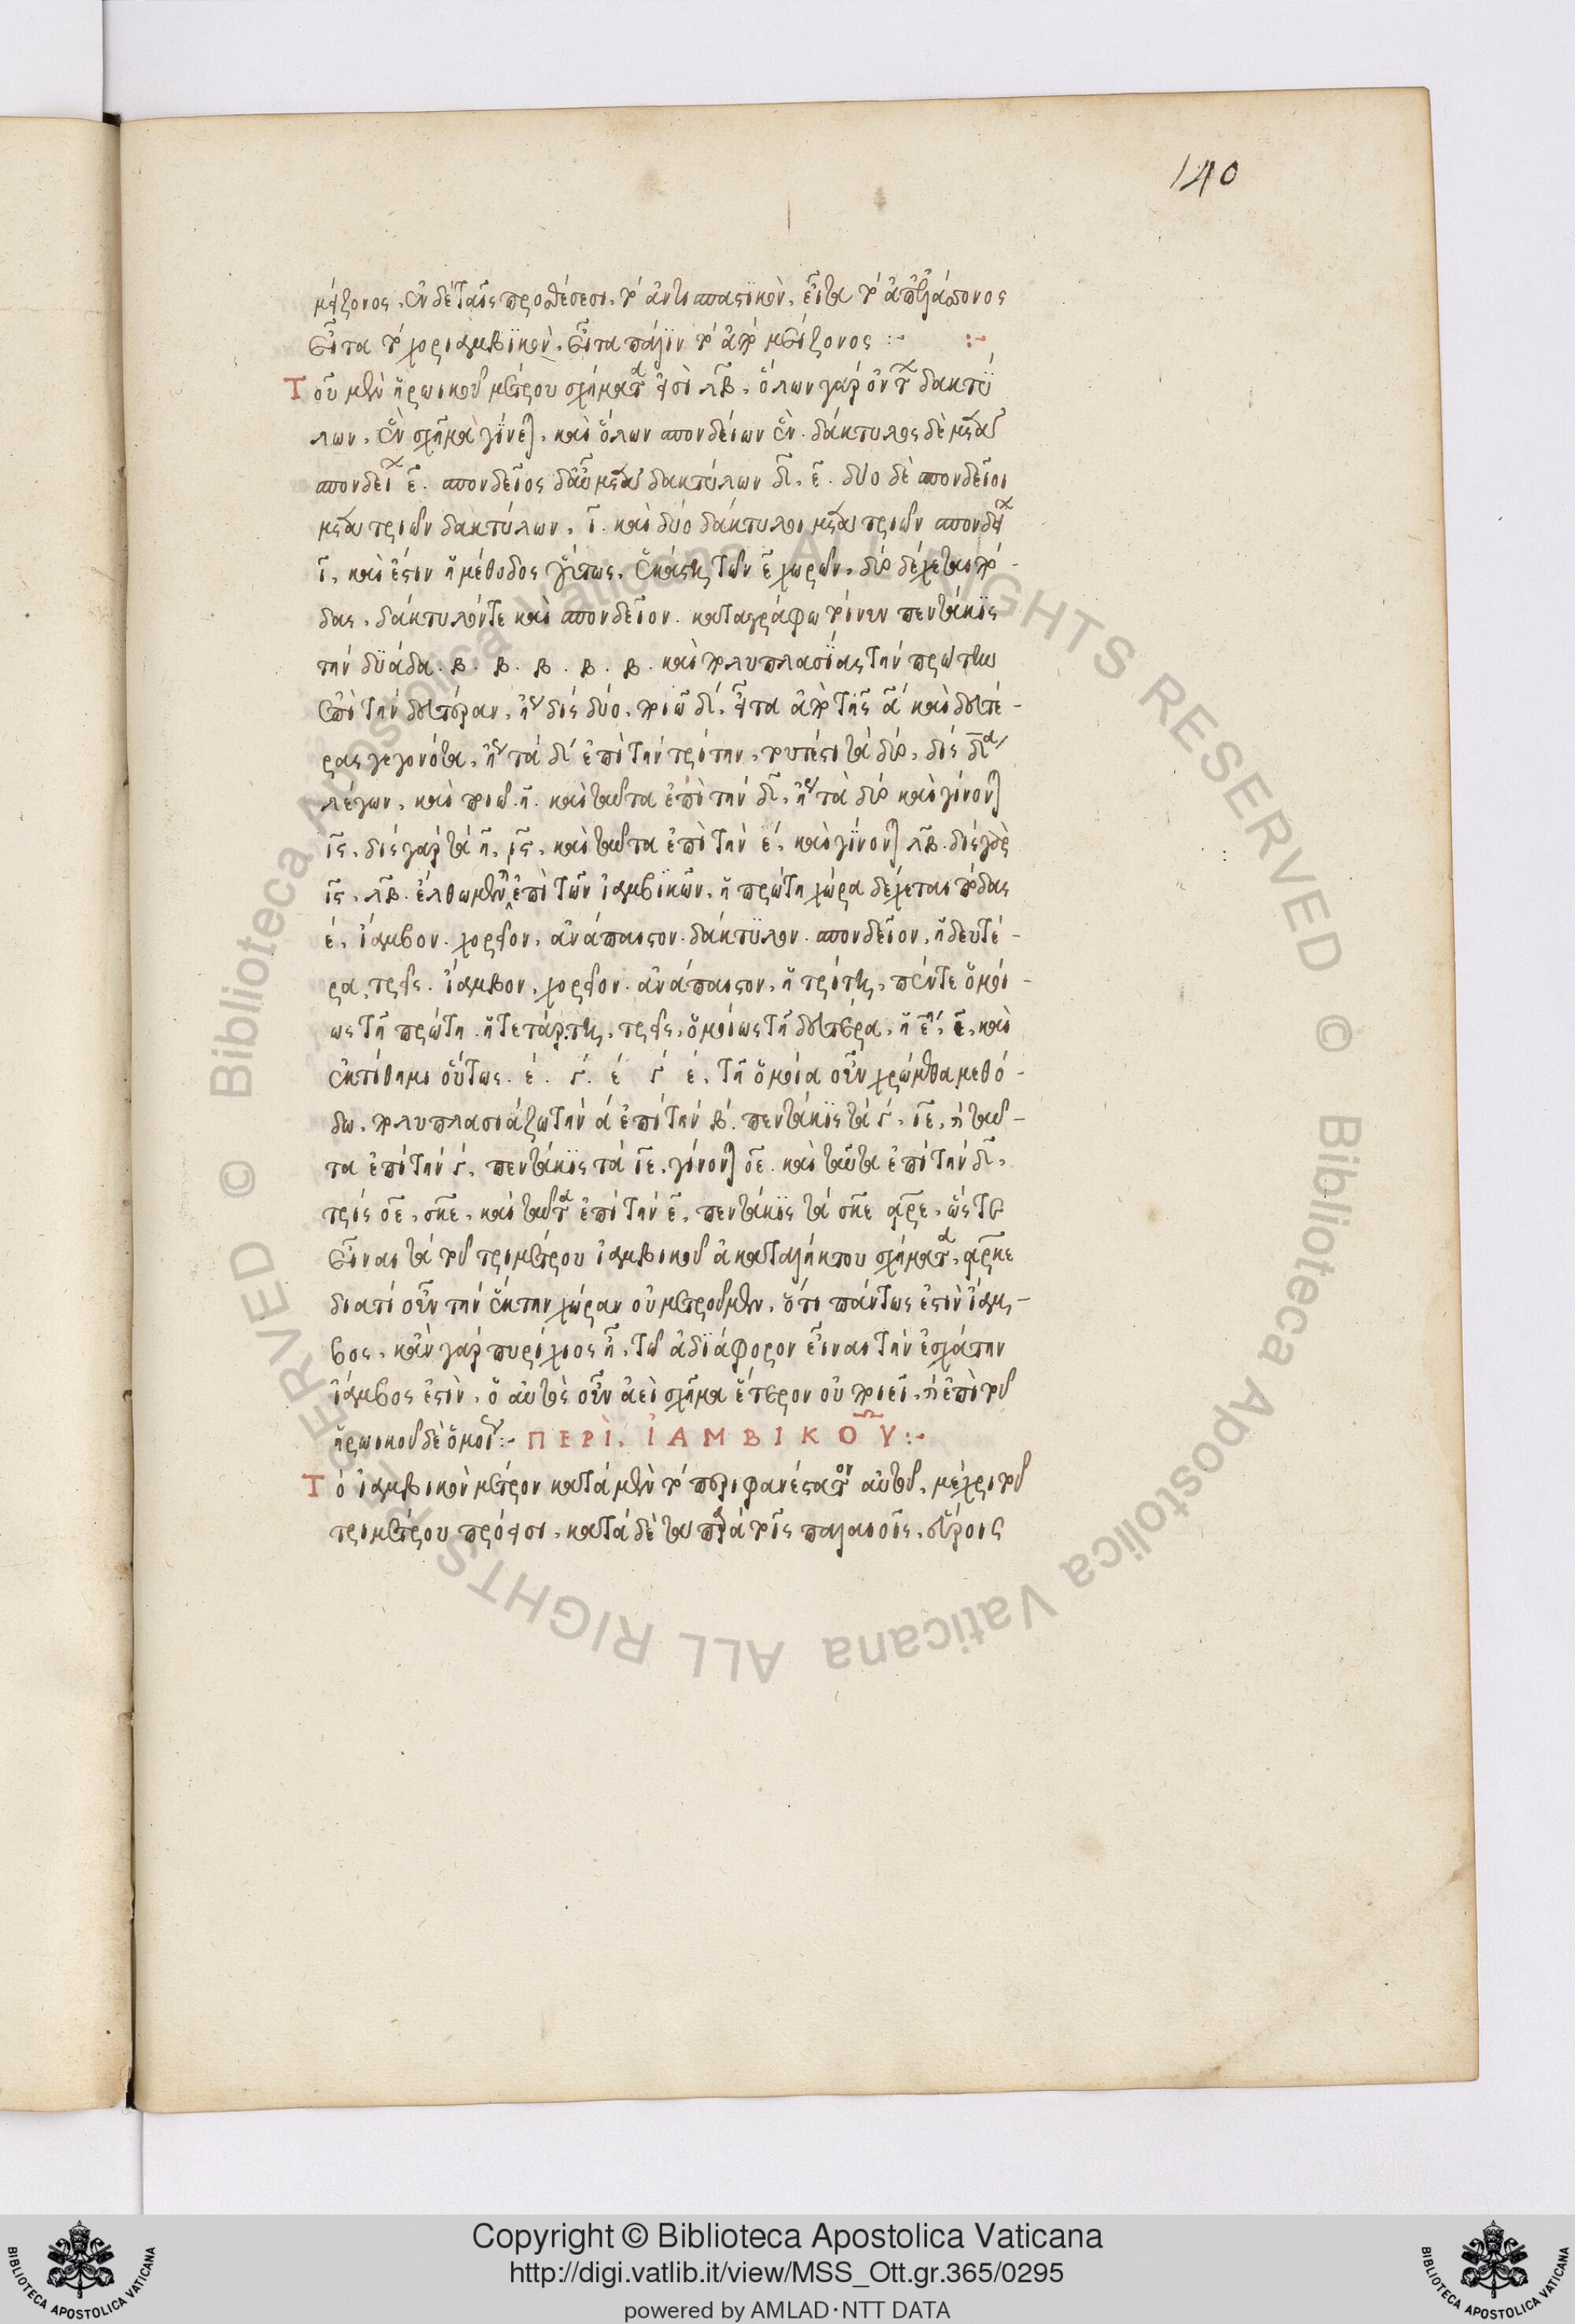 140
μείζονος. ἐν δὲ ταῖς προσθέσεσι, τὸ ἀντισπαστικὸν, εἶτα τὸ ἀπ' ἐλάττονος
εἶτα τὸ χοριαμβϊκὸν. εἶτα πάλϊν τὸ ἀπὸ μείζονος :- :-
Τοῦ μὲν ἡρωικοῦ μέτρου σχήματα εἰσὶ λβ. ὅλων γὰρ ὄντων δακτύ
λων, ἓν σχῆμα γίνεται, καὶ ὅλων σπονδείων ἓν. δάκτυλος δὲ μετὰ
σπονδείων ε. σπονδεῖος δ' αὖ μετὰ δακτύλων δ, ε. δύο δὲ σπονδεῖοι
μετὰ τριῶν δακτύλων, ι. καὶ δύο δάκτυλοι μετὰ τριῶν σπονδείων
ι, καὶ ἔστιν ἡ μέθοδος οὕτως. ἑκάστη τῶν ε χωρῶν, δύο δέχεται πό-
δας, δάκτυλόν τε καὶ σπονδεῖον. καταγράφω τοίνυν πεντάκϊς
τὴν δϋάδα. β. β. β. β. β. καὶ πολυπλασϊάζω τὴν πρώτην
ἐπὶ τὴν δευτέραν, ἤγουν δὶς δύο, ποιῶ δ, εἶτα ἀπὸ τῆς α καὶ δευτέ-
ρας γεγονότα, ἤγουν τὰ δ ἐπὶ τὴν τρίτην, τουτέστι τὰ δύο, δὶς δ
λέγων, καὶ ποιῶ η. καὶ ταῦτα ἐπὶ τὴν δ, ἤγουν τὰ δύο καὶ γίνονται
ις, δὶς γὰρ τὰ η, ις, καὶ ταῦτα ἐπὶ τὴν ε, καὶ γίνονται λβ. δὶς γὰρ
ις, λβ. ἔλθωμεν ἐπὶ τῶν ἰαμβϊκῶν, ἡ πρώτη χώρα δέχεται πόδας
ε, ἴαμβον. χορεῖον, ἀνάπαιστον. δάκτϋλον. σπονδεῖον, ἡ δευτέ-
ρα, τρεῖς. ἴαμβον, χορεῖον. ἀνάπαιστον, ἡ τρίτη, πέντε ὁμοί-
ως τῆ πρώτη. ἡ τετάρτη, τρεῖς, ὁμοίως τῆ δευτέρα, ἡ ε, ε, καὶ
ἐκτίθημι οὕτως. ε. γ. ε γ ε, τῆ ὁμοία οὖν χρώμεθα μεθό-
δω, πολυπλασιάζω τὴν α ἐπὶ τὴν β. πεντάκϊς τὰ γ, ιε, καὶ ταῦ-
τα ἐπὶ τὴν γ, πεντάκϊς τὰ ιε, γίνονται οε. καὶ ταῦτα ἐπὶ τὴν δ,
τρὶς οε, σκε, καὶ ταῦτα ἐπὶ τὴν ε, πεντάκϊς τὰ σκε αρκε, ὥστε
εἶναι τὰ τοῦ τριμέτρου ἰαμβικοῦ ἀκαταλήκτου σχήματα, αρκε
διατί οὖν τὴν ἕκτην χώραν οὐ μετροῦμεν, ὅτι πάντως ἐστὶν ἴαμ-
βος, κἂν γὰρ πυρίχιος ἦ, τῶ ἀδϊάφορον εἶναι τὴν ἐσχάτην
ἴαμβος ἐστὶν, ὁ αὐτὸς οὖν ἀεὶ σχῆμα ἕτερον οὐ ποιεῖ, καὶ ἐπὶ τοῦ
ἡρωικοῦ δὲ ὁμοίως :- ΠΕΡῚ. ἸΑΜΒΙΚΟΥ͂ :-
Τὸ ἰαμβικὸν μέτρον κατὰ μὲν τὸ περιφανέστατον αὐτοῦ, μέχρι τοῦ
τριμέτρου πρόεισι, κατὰ δὲ τὰ παρὰ τοῖς παλαιοῖς,
Copyright © Biblioteca Apostolica Vaticana
http://digi.vatlib.it/view/MSS_Ott.gr.365/0295
powered by AMLAD·NTT DATA
BIBLIOTECA APOSTOLICA VATICANA
BIBLIOTECA APOSTOLICA VATICANA
© Biblioteca Apostolica Vaticana ALL RIGHTS RESERVED
© Biblioteca Apostolica Vaticana ALL RIGHTS RESERVED